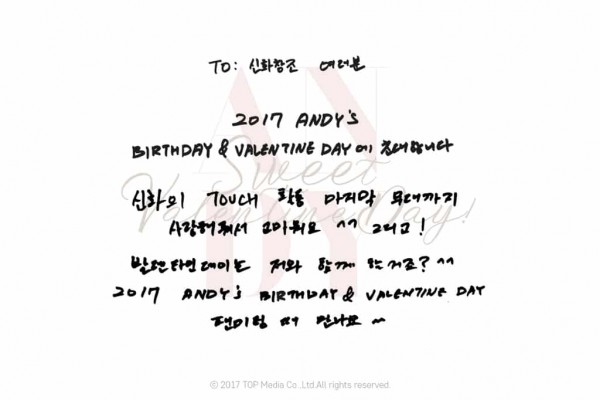 TO: 신화창조 여러분
2017 ANDY's
BIRTHDAY & VALENTINE DAY에 초대합니다
신화의 TOUCH 활동 마지막 무대까지
사랑해줘서 고마워요 ^^ 그리고!
발렌타인데이는 저와 함께 할거죠? ^^
2017 ANDY's BIRTHDAY & VALENTINE DAY
팬미팅 때 만나요 ~
AN
DY
Sweet
Valentine Day!
ⓒ 2017 TOP Media Co.,Ltd.All rights reserved.